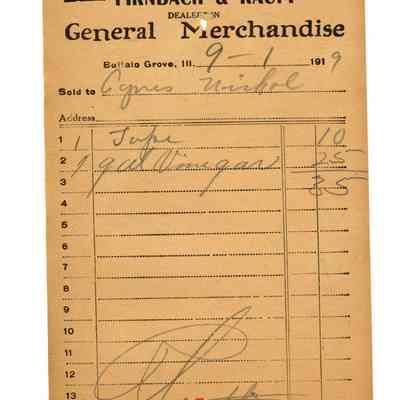 FIRNBACH & RAUPP
DEALERS IN
General Merchandise
Buffalo Grove, Ill. 9-1 1919
Sold to Agnes Nickol
Address
1 1 Tape 10
2 1 gal Vinegar 25
3 35
4
5
6
7
8
9
10
11
12
13